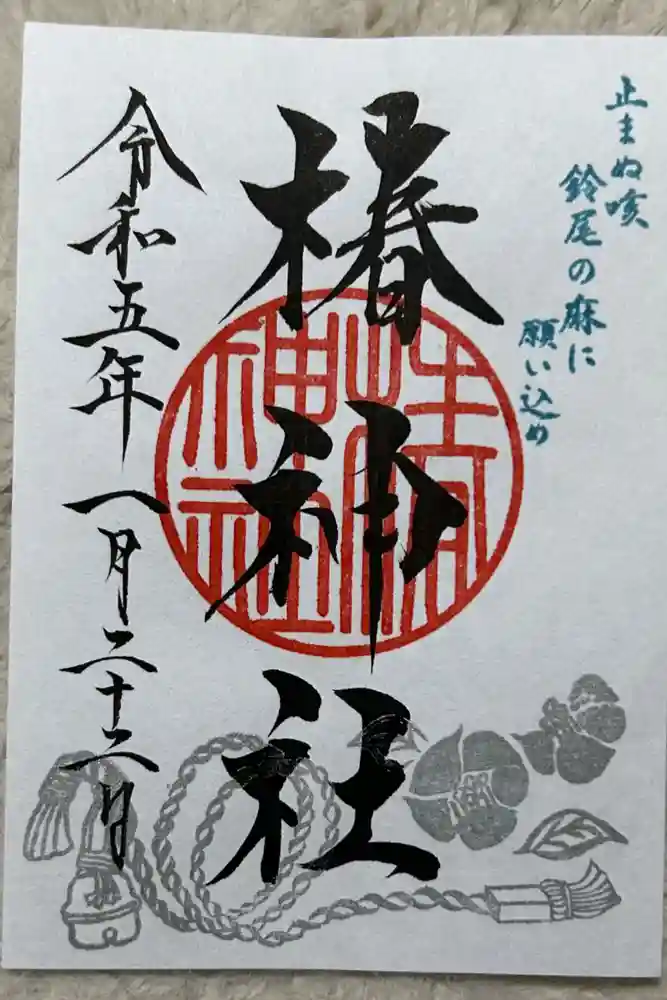 止まぬ咳
鈴尾の麻に
願い込め
椿神社
令和五年一月二十二日